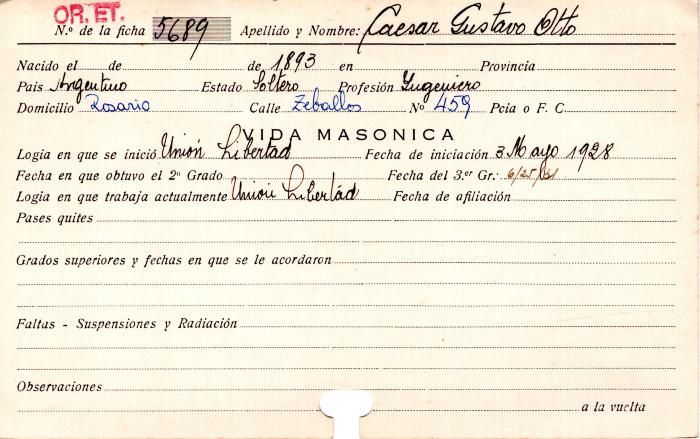 OR. ET.
N.º de la ficha 5689 Apellido y Nombre: Caesar Gustavo Otto
Nacido el de de 1893 en Provincia
Pais Argentino Estado Soltero Profesión Ingeniero
Domicilio Rosario Calle Zeballos Nº 459 Pcia o F. C.
VIDA MASONICA
Logia en que se inició Unión Libertad Fecha de iniciación 3 Mayo 1928
Fecha en que obtuvo el 2º Grado Fecha del 3.er Gr.
Logia en que trabaja actualmente Unión Libertád Fecha de afiliación
Pases quites
Grados superiores y fechas en que se le acordaron
Faltas - Suspensiones y Radiación
Observaciones
a la vuelta